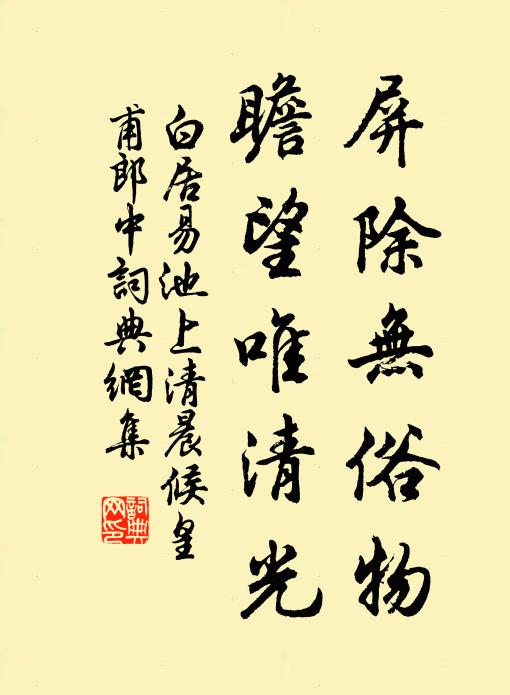 屏除無俗物
瞻望唯清光
白居易池上清晨候皇
甫郎中詞典網集
詞典
网印